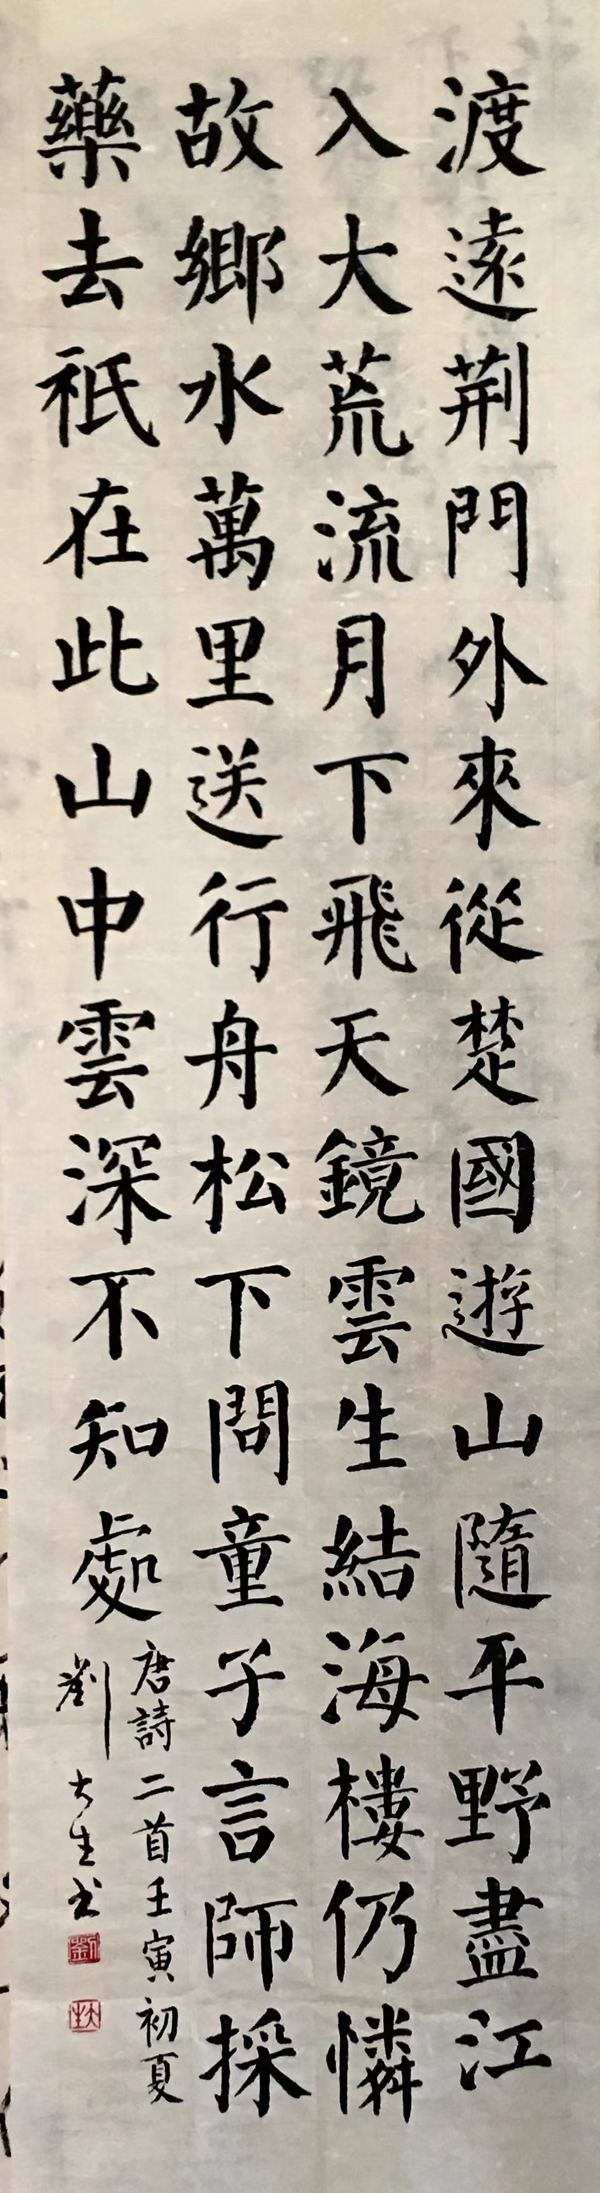 渡遠荊門外來從楚國遊山隨平野盡江
入大荒流月下飛天鏡雲生結海樓仍憐
故鄉水萬里送行舟松下問童子言師採
藥去祇在此山中雲深不知處
唐詩二首壬寅初夏
劉大生书
劉